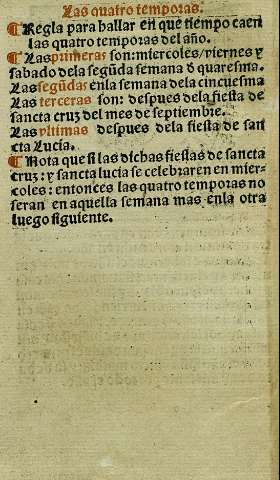 Las quatro temporas.
¶ Regla para hallar en que tiempo caen
las quatro temporas del año.
¶ Las primeras son: miercoles/viernes y
sabado dela segūda semana d̄ quaresma.
Las segūdas enla semana dela cincuesma
Las terceras son: despues dela fiesta de
sancta cruz del mes de septiembre.
Las vltimas despues dela fiesta de san
cta Lucia.
¶ Nota que si las dichas fiestas de sancta
cruz: y sancta lucia se celebraren en mier-
coles: entonces las quatro temporas no
seran en aquella semana mas enla otra
luego siguiente.